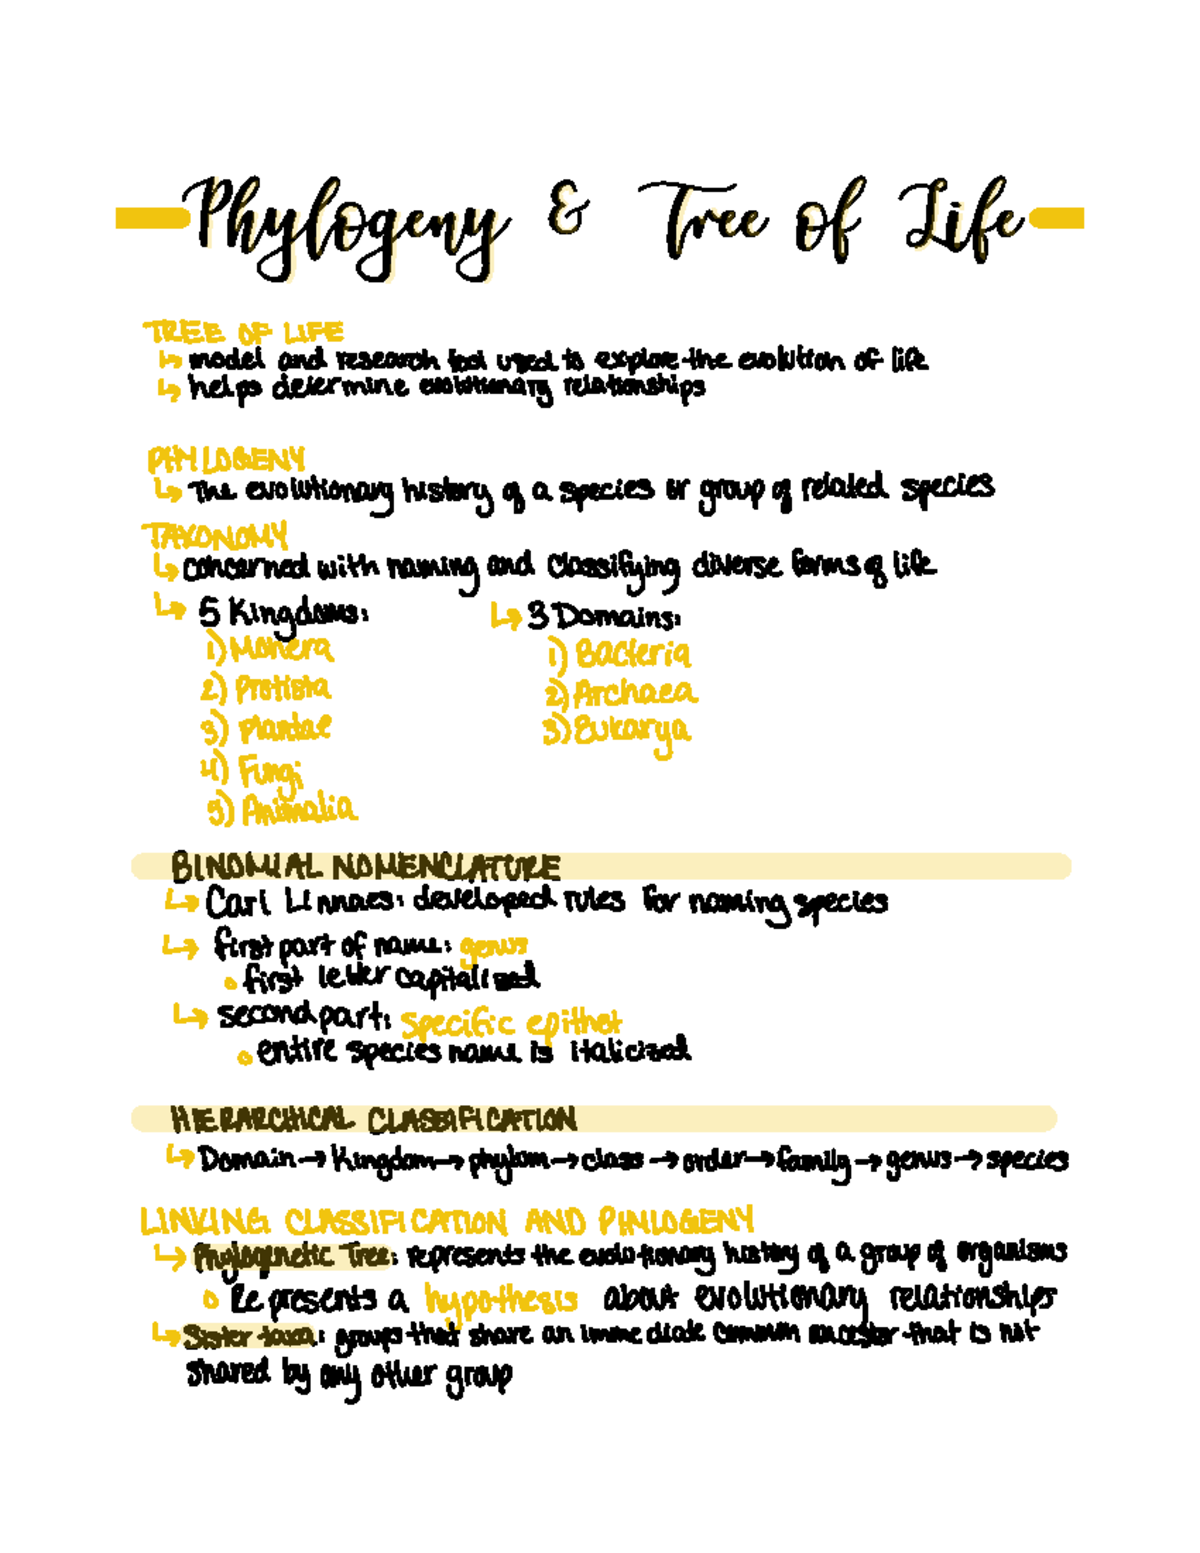 Phylogeny & Tree of Life
TREE OF LIFE
↳ model and research tool used to explore the evolution of life
↳ helps determine evolutionary relationships
PHYLOGENY
↳ The evolutionary history of a species or group of related species
TAXONOMY
↳ concerned with naming and classifying diverse forms of life
↳ 5 Kingdoms:
1) Monera
2) Protista
3) Plantae
4) Fungi
5) Animalia
↳ 3 Domains:
1) Bacteria
2) Archaea
3) Eukarya
BINOMIAL NOMENCLATURE
↳ Carl Linnaes: developed rules for naming species
↳ first part of name: genus
○ first letter capitalized
↳ second part: specific epithet
○ entire species name is italicized
HIERARCHICAL CLASSIFICATION
↳ Domain → Kingdom → phylum → class → order → family → genus → species
LINKING CLASSIFICATION AND PHYLOGENY
↳ Phylogenetic Tree: represents the evolutionary history of a group of organisms
○ Represents a hypothesis about evolutionary relationships
↳ Sister taxa: groups that share an immediate common ancestor that is not
shared by any other group